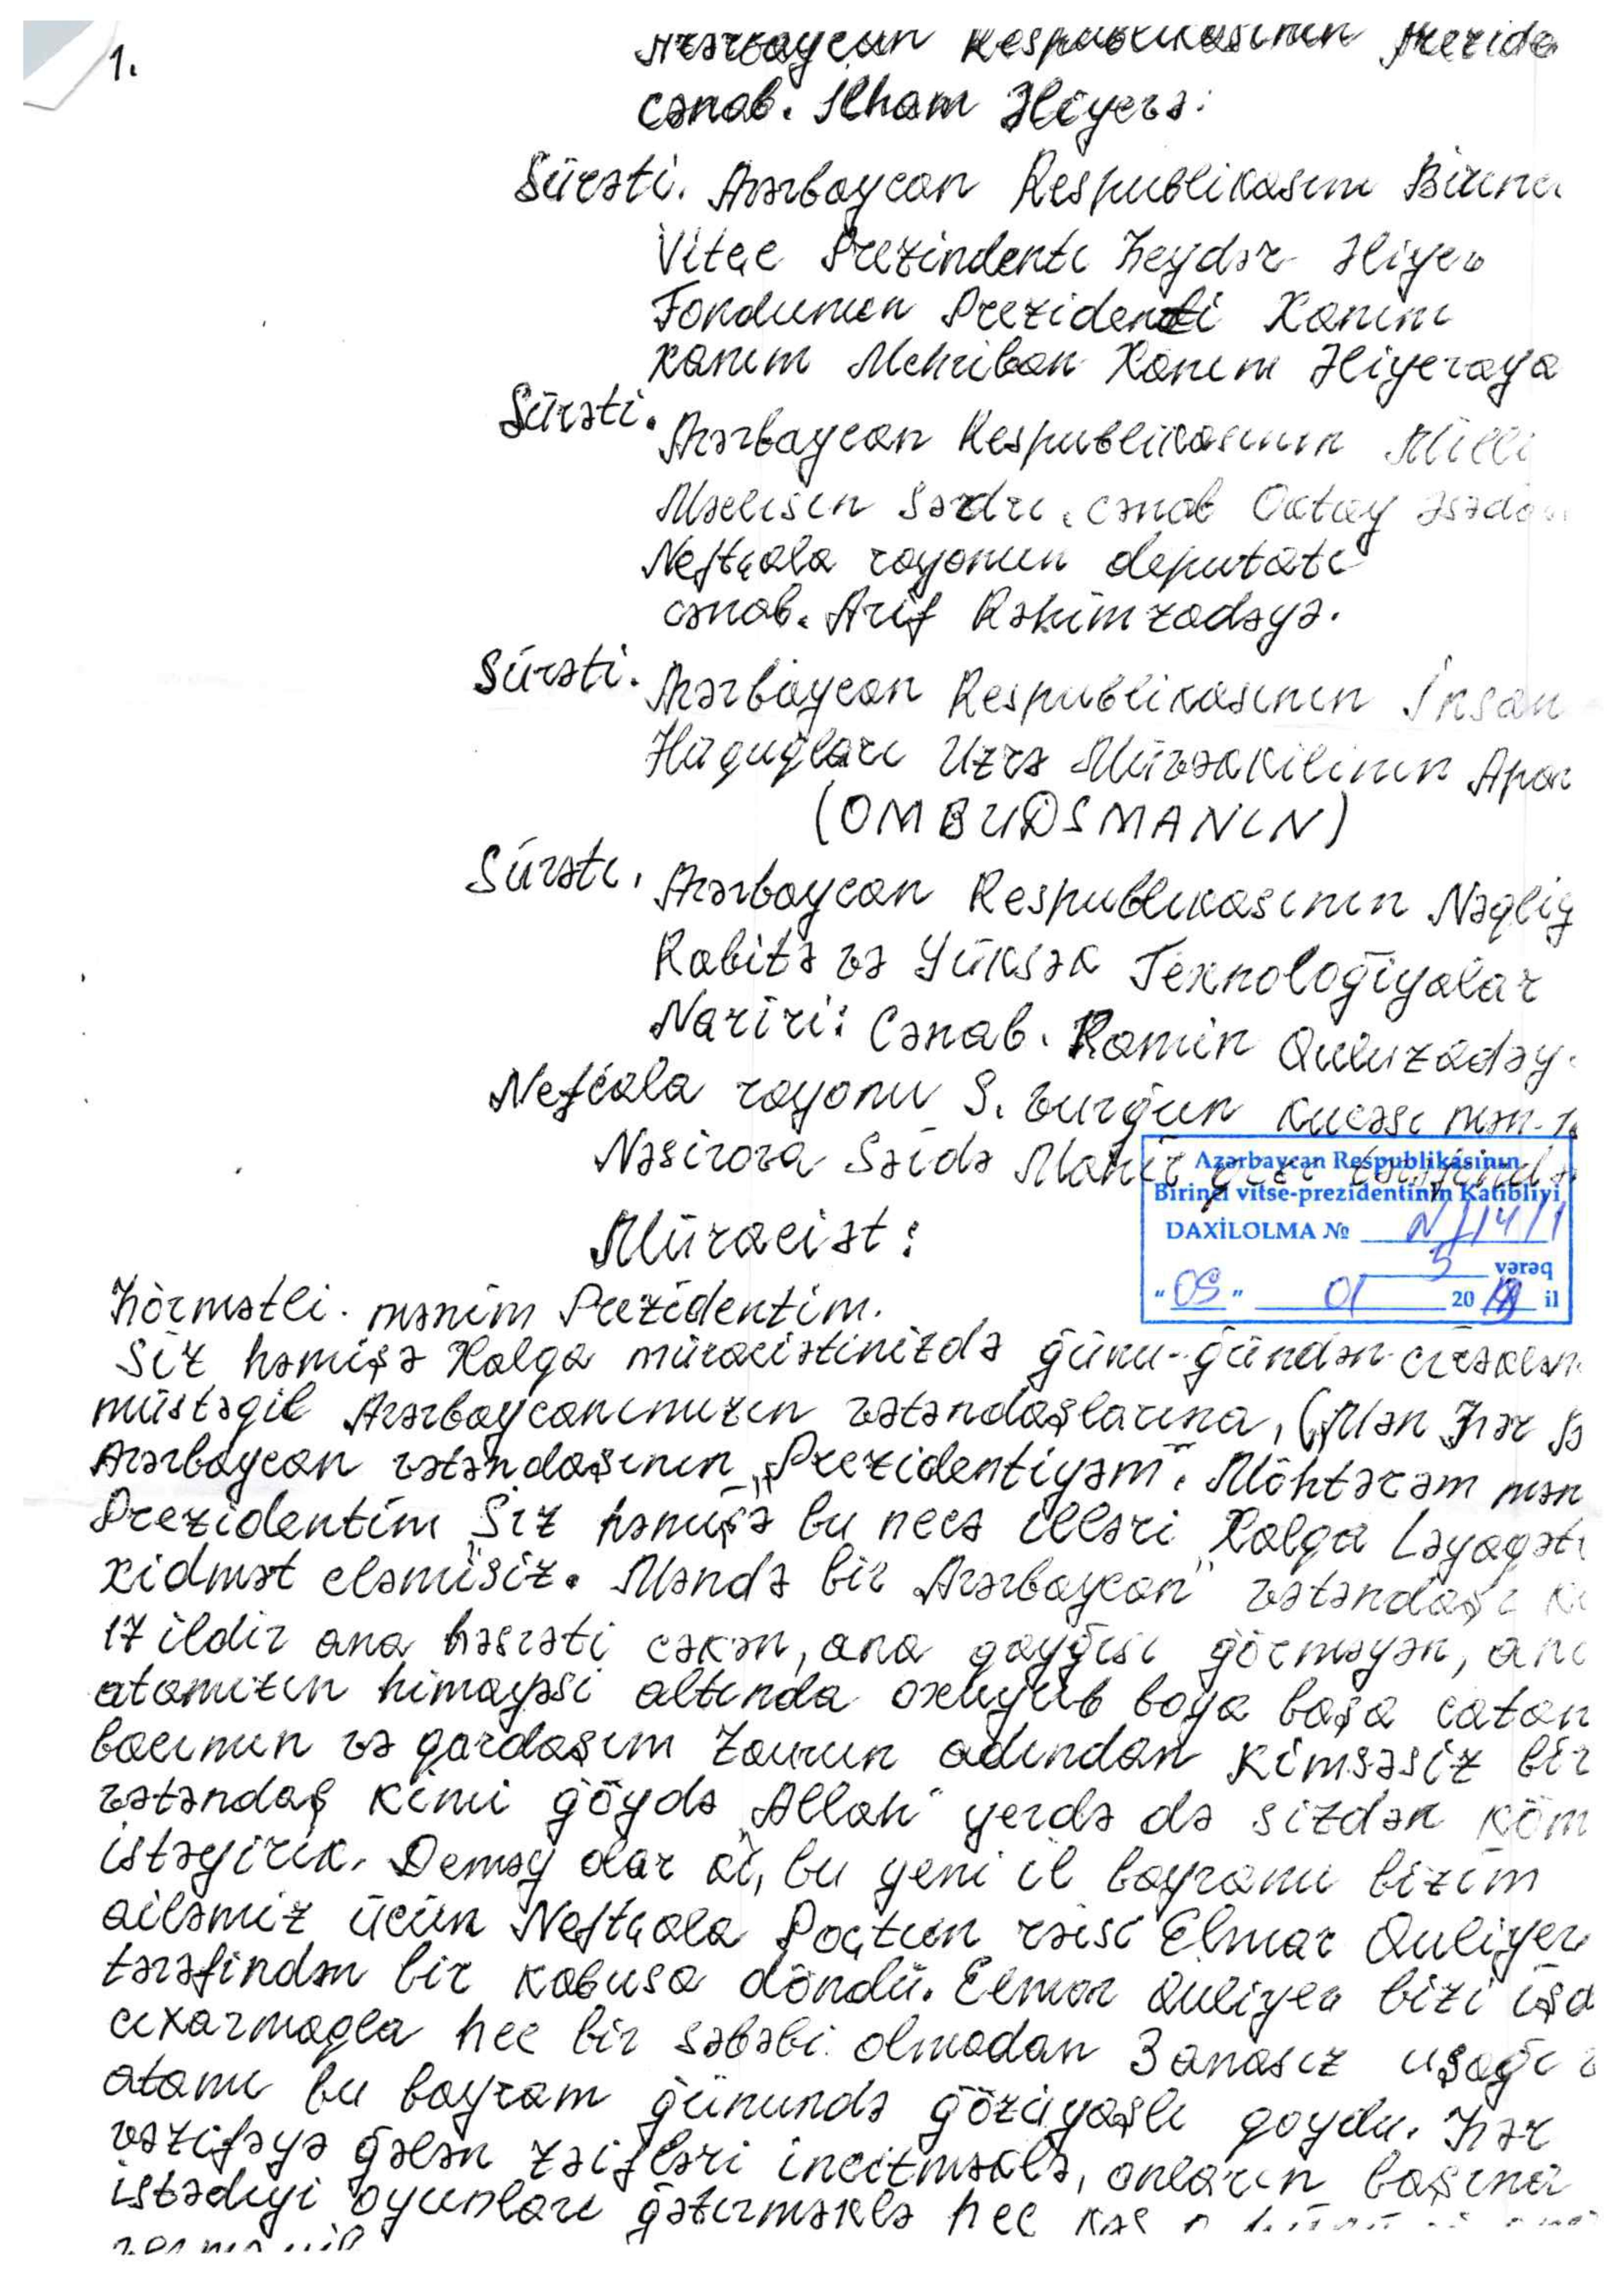 1.
Azərbaycan Respublikasının Prezide
cənab. İlham Əliyevə:
Sürəti. Azərbaycan Respublikasını Birinci
Vitçe Prezindenti Heydər Əliyev
Fondunun Prezidenti Xanım
xanım Mehriban Xanım Əliyevaya
Sürəti. Azərbaycan Respublikasının Milli
Məclisin Sədri, cənab Oktay Əsədov
Neftçala rayonun deputatı
cənab. Arif Rəhimzadəyə.
Sürəti. Azərbaycan Respublikasının İnsan
Hüquqları Uzrə Müvəkkilinin Apar
(OMBUDSMANIN)
Sürəti. Azərbaycan Respublikasının Nəqliy
Rabitə və Yüksək Texnoloğiyalar
Naziri: Cənab. Ramin Quluzadəy
Nefcala rayonu S. Vurğun kucəsi mən-
Nəsirova Səidə Mahir qızı tərəfində
Azərbaycan Respublikasının
Birinci vitse-prezidentinin Katibliyi
DAXİLOLMA № N/14/1
5 vərəq
"05" 01 20 il
Müraciət:
Hörmətli. mənim Prezidentim.
Siz həmişə Xalqa müraciətinizdə günü-gündən
müstəqil Azərbaycanımızın vətəndaşlarına, (Mən Hər
Azərbaycan vətəndaşının "Prezidentiyəm". Möhtərəm mən
Prezidentim Siz həmişə bu necə illəri Xalqa Ləyaqətı
xidmət eləmisiz. Məndə bir "Azərbaycan" vətəndaşı ki
17 ildir ana həsrəti cəkən, ana qayğısı görməyən, anc
atamızın himayəsi altında oxuyub boya başa catan
bacımın və qardaşım Zaurun adından kimsəsiz bir
vətəndaş kimi göydə "Allah" yerdə də sizdən köm
istəyirik. Deməy olar ki, bu yeni il bayramı bizim
ailəmiz ücün Neftçala Poçtun rəisi Elmar Quliyev
tərəfindən bir kabusa döndü. Elmar Quliyev bizi işd
cıxarmaqla hec bir səbəbi olmadan 3 anasız uşağı v
atamı bu bayram gününda gözüyaşlı qoydu. Hər
vəzifəyə gələn zəifləri incitməklə, onların başına
istədiyi oyunları gətirməklə hec kəs